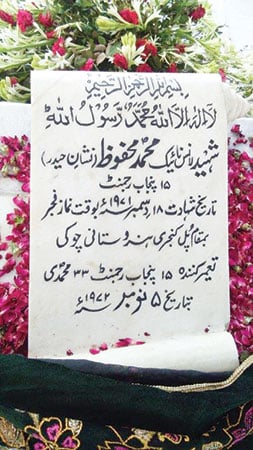 بسم اللہ الرحمن الرحیم
لا الہ الا اللہ محمد رسول اللہ
شہید لانس نائیک محمد محفوظ (نشان حیدر)
۱۵ پنجاب رجمنٹ
تاریخ شہادت ۱۸ دسمبر ۱۹۷۱ء بوقت نماز فجر
بمقام پل کنجری ہندوستانی چوکی
تعمیر کنندہ ۱۵ پنجاب رجمنٹ ۳۳ محمدی
بتاریخ ۵ نومبر ۱۹۷۲ء